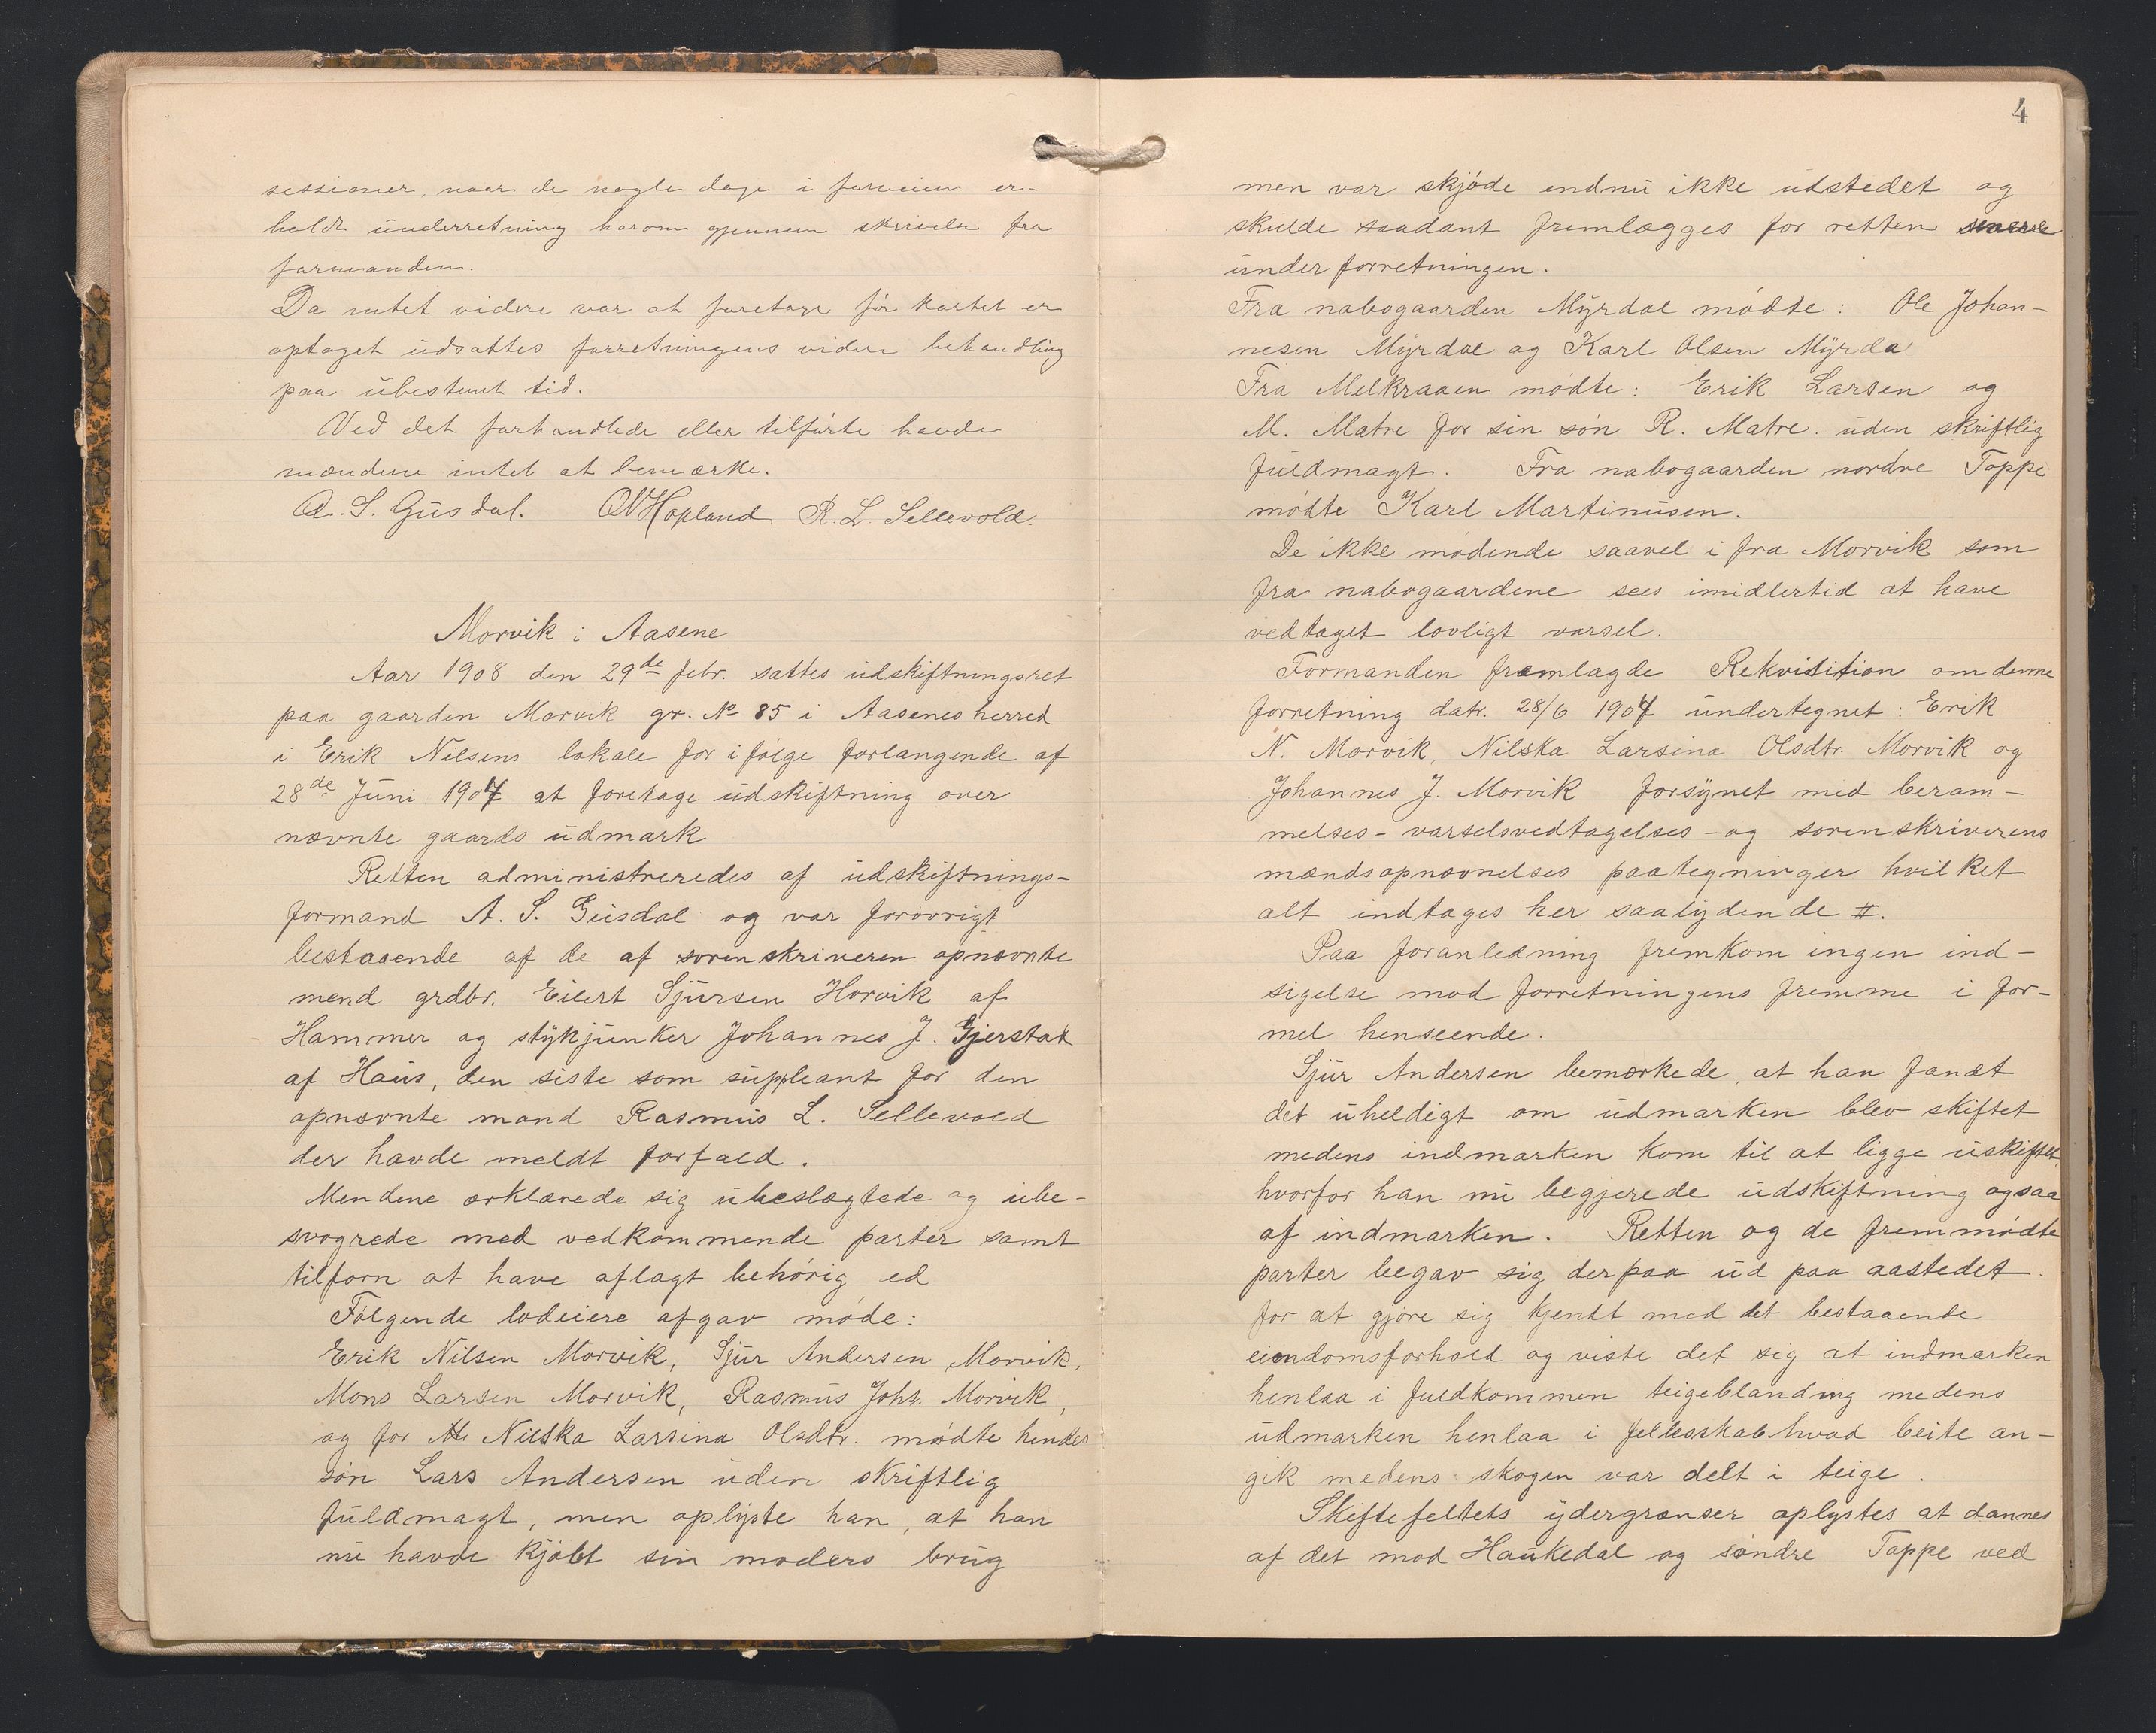 sessioner, naar de nogle dage i forveien er-
holdt underretning herom gjennem skrivelse fra
formanden.
Da intet videre var at foretage før kartet er
optaget udsattes forretningens videre behandling
paa ubestemt tid.
Ved det forhandlede eller tilførte havde
mændene intet at bemærke.
A. S. Gusdal. ON Hopland R. L. Sellevold.
Morvik i Aasene
Aar 1908 den 29de febr. sattes udskiftningsret
paa gaarden Morvik gr. No 85 i Aasenes herred
i Erik Nilsens lokale for ifølge forlangende af
28de Juni 1907 at foretage udskiftning over
nævnte gaards udmark
Retten administreredes af udskiftnings-
formand A. S. Gusdal og var forøvrigt
bestaaende af de af sorenskriveren opnævnte
mend grdbr. Eilert Sjursen Horvik af
Hammer og stykjunker Johannes J. Gjerstad
af Haus, den siste som suppleant for den
opnævnte mand Rasmus L. Sellevold
der havde meldt forfald.
Mendene erklærede sig ubeslægtede og ube-
svogrede med vedkommende parter samt
tilforn at have aflagt behørig ed
Følgende lodeiere afgav møde:
Erik Nilsen Morvik, Sjur Andersen Morvik,
Mons Larsen Morvik, Rasmus Johs. Morvik,
og for Nilska Larsina Olsdtr. mødte hendes
søn Lars Andersen uden skriftlig
fuldmagt, men oplyste han, at han
nu havde kjøbt sin moders brug
4
men var skjøde endnu ikke udstedet og
skulde saadant fremlægges for retten senere
under forretningen.
Fra nabogaarden Myrdal mødte: Ole Johan-
nesen Myrdal og Karl Olsen Myrdal
Fra Melkraaen mødte: Erik Larsen og
M. Matre for sin søn R. Matre. uden skriftlig
fuldmagt. Fra nabogaarden nordre Toppe
mødte Karl Martinusen.
De ikke mødende saavel i fra Morvik som
fra nabogaardene sees imidlertid at have
vedtaget lovligt varsel.
Formanden fremlagde Rekvisition om denne
forretning datr. 28/6 1907 undertegnet: Erik
N. Morvik, Nilska Larsina Olsdtr. Morvik og
Johannes J. Morvik forsynet med beram-
melses- varselsvedtagelses- og sorenskriverens
mændsopnævnelses paategninger hvilket
alt indtages her saalydende #.
Paa foranledning fremkom ingen ind-
sigelse mod forretningens fremme i for-
mel henseende.
Sjur Andersen bemærkede, at han fandt
det uheldigt om udmarken blev skiftet
medens indmarken kom til at ligge uskiftet,
hvorfor han nu begjerede udskiftning ogsaa
af indmarken. Retten og de fremmødte
parter begav sig derpaa ud paa aastedet.
for at gjøre sig kjendt med det bestaaende
eiendomsforhold og viste det sig at indmarken
henlaa i fuldkommen teigeblanding medens
udmarken henlaa i fellesskab hvad beite an-
gik medens skogen var delt i teige.
Skiftefeltets ydergrænser oplystes at dannes
af det mod Haukedal og søndre Toppe ved